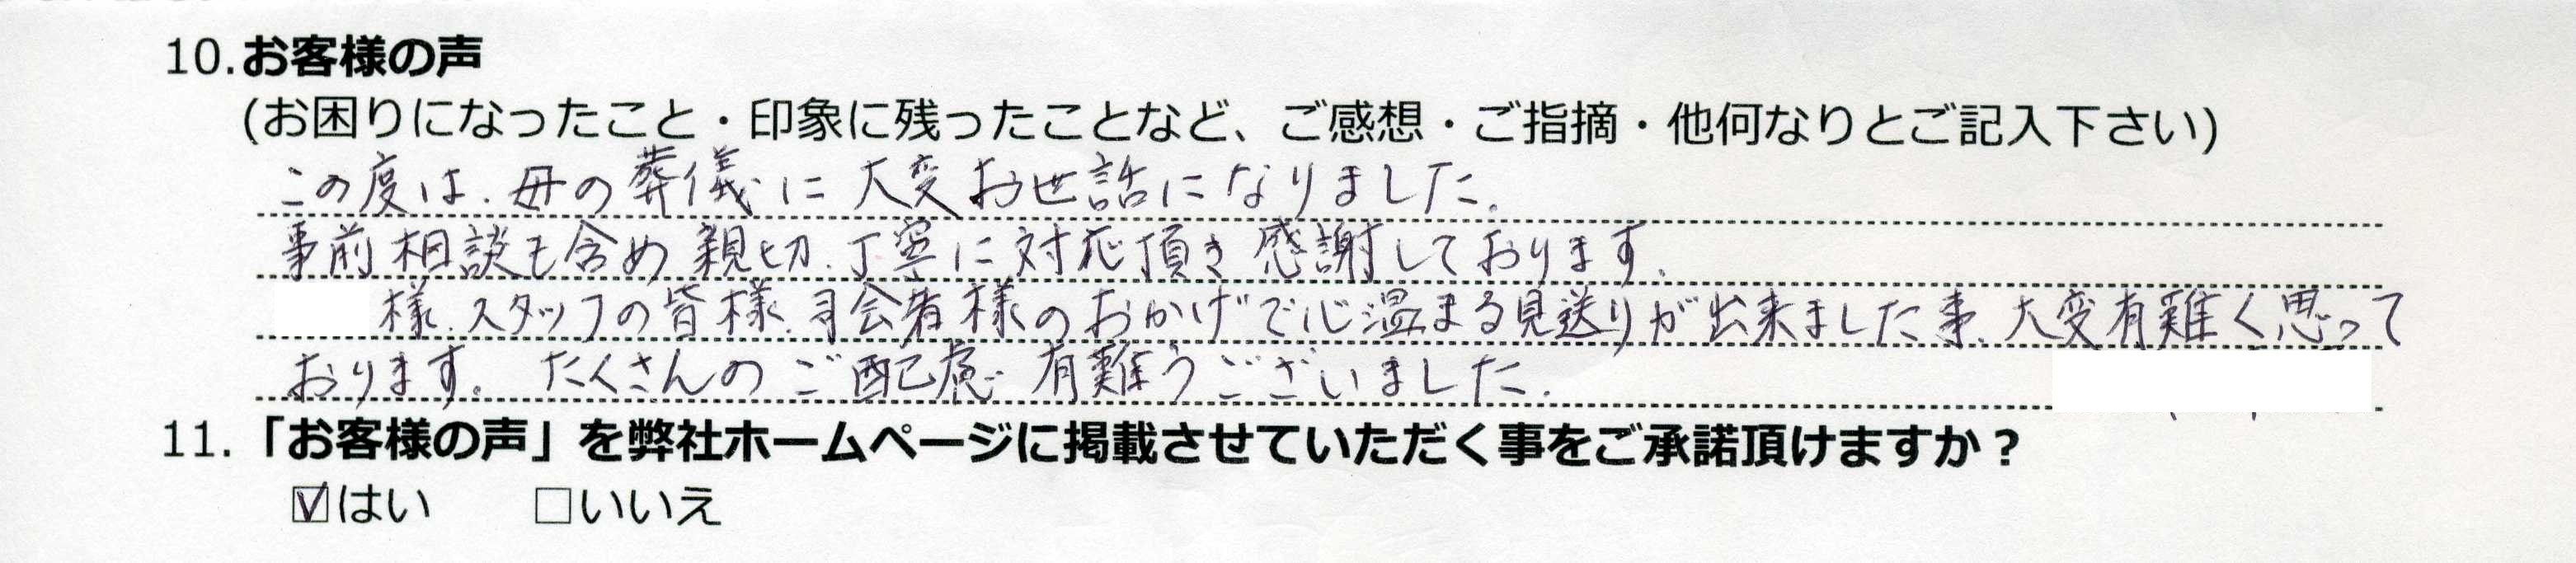 10.お客様の声
(お困りになったこと・印象に残ったことなど、ご感想・ご指摘・他何なりとご記入下さい)
この度は、母の葬儀に大変お世話になりました。
事前相談も含め親切、丁寧に対応頂き感謝しております。
様、スタッフの皆様、司会者様のおかげで心温まる見送りが出来ました事、大変有難く思って
おります。たくさんのご配慮有難うございました。
11.「お客様の声」を弊社ホームページに掲載させていただく事をご承諾頂けますか？
☑はい □いいえ